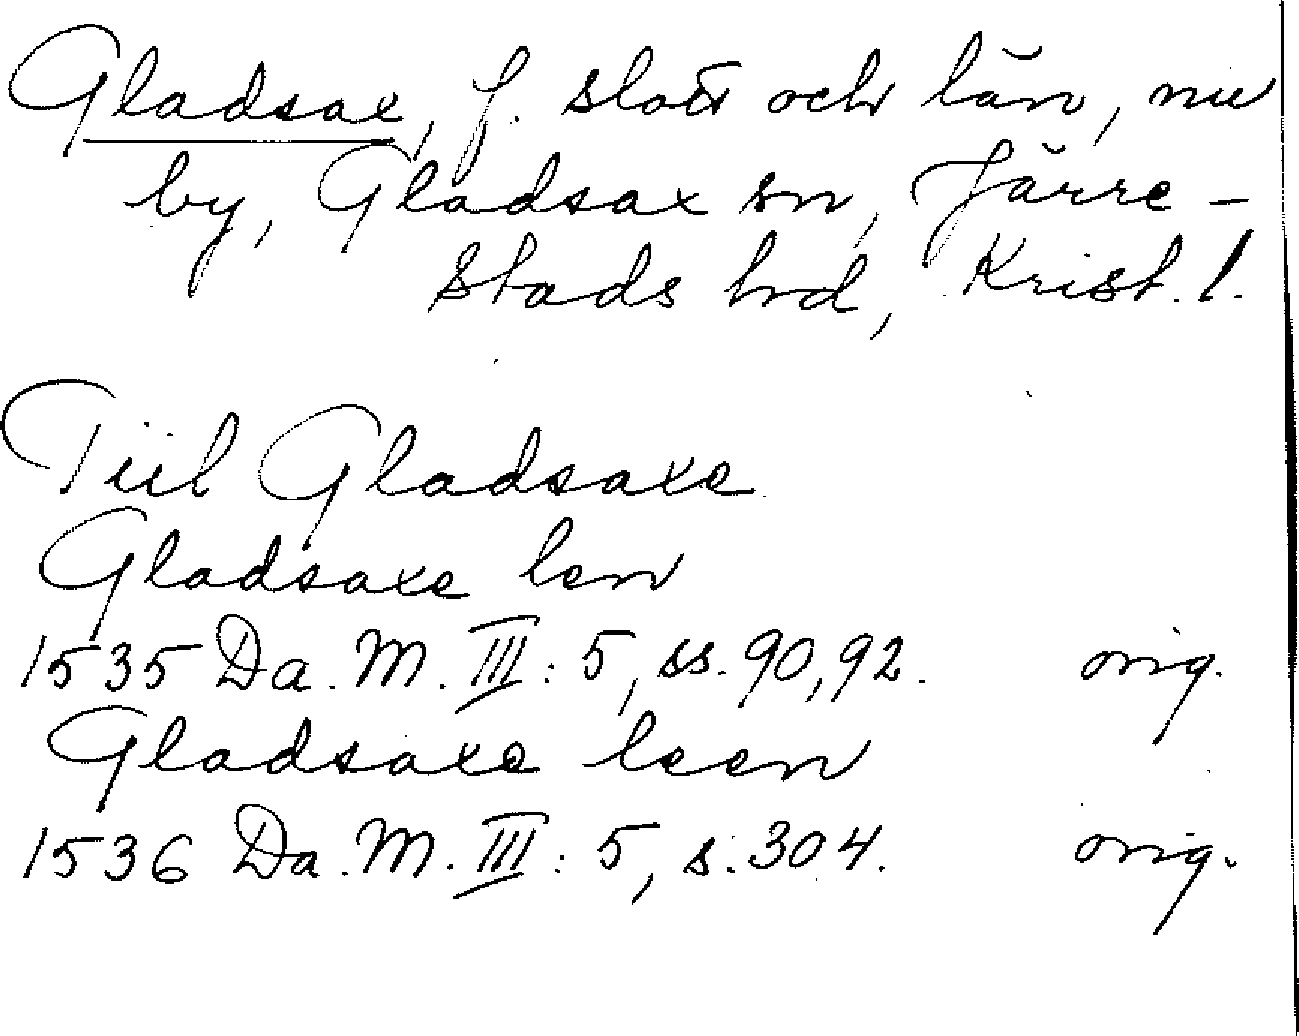 Gladsax, f. slott och län, nu
by, Gladsax sn, Järre-
stads hd, Krist. l.
Tiil Gladsaxe
Gladsaxe len
1535 Da. M. III: 5, ss. 90, 92. orig.
Gladsaxe leen
1536 Da. M. III: 5, s. 304. orig.